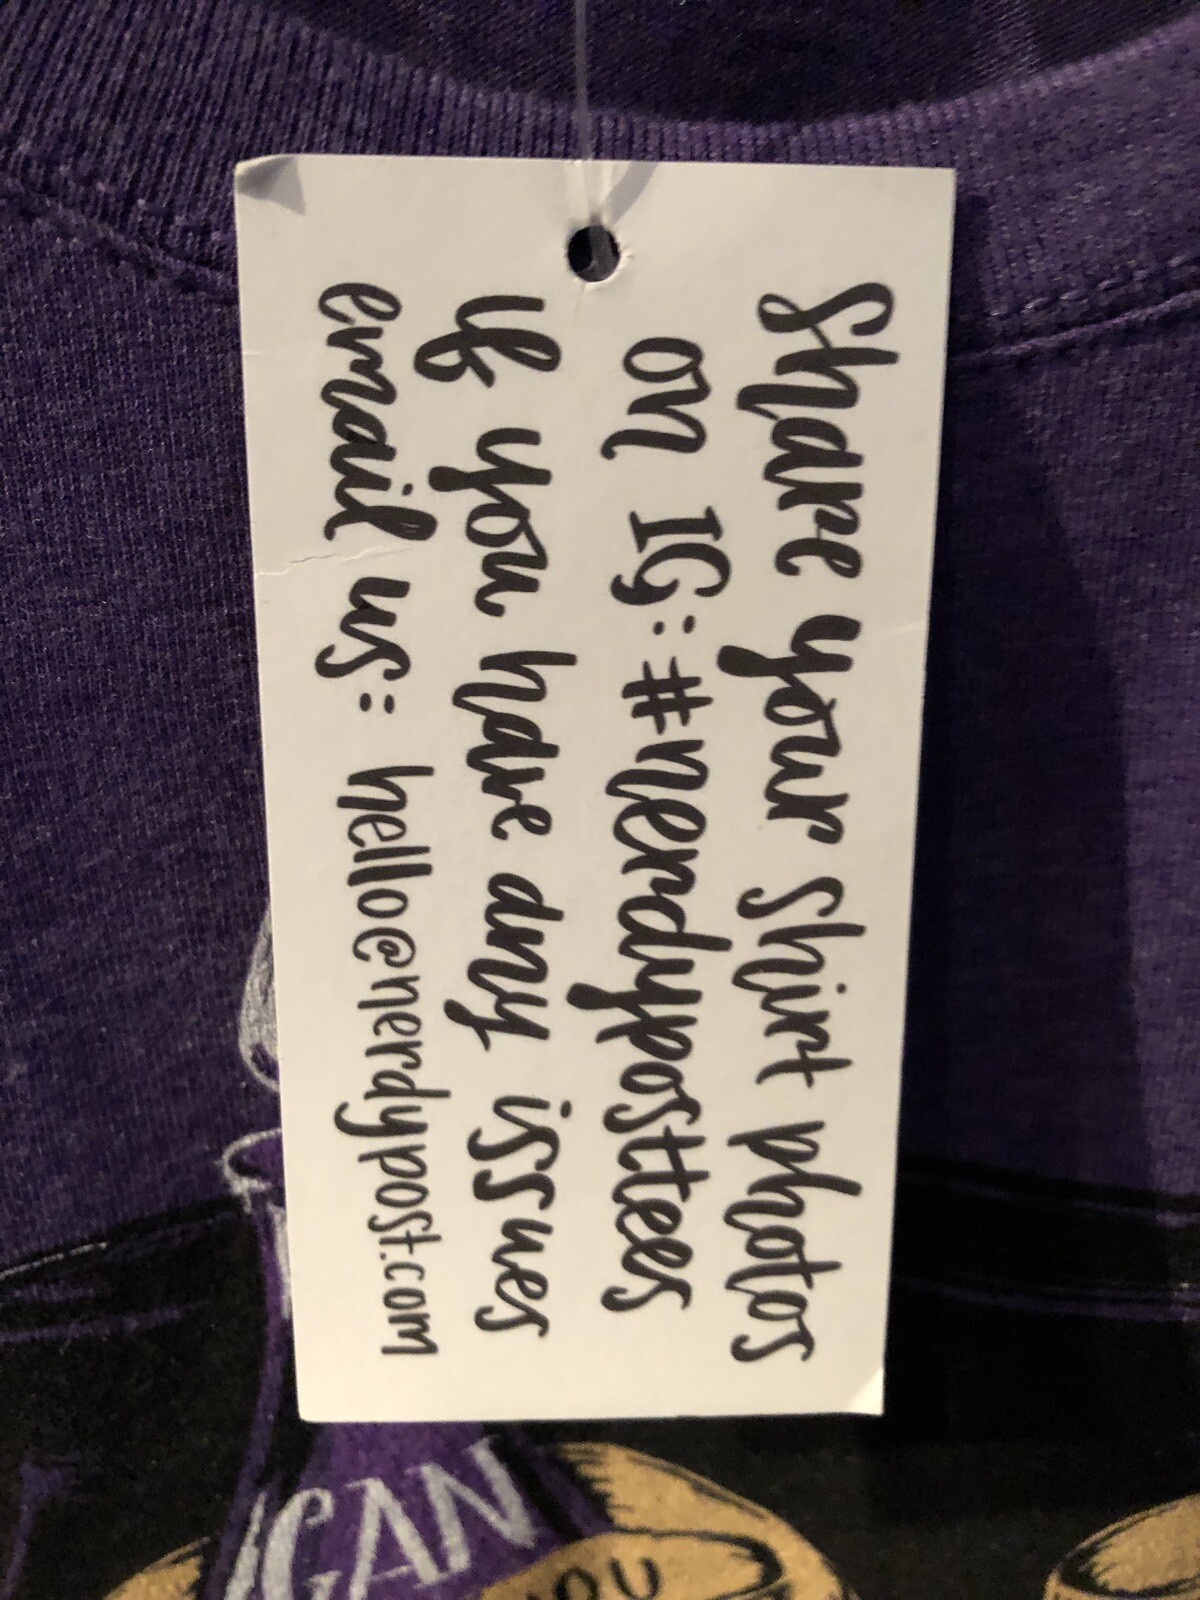 Share your shirt photos
on IG: #nerdyposttees
if you have any issues
email us: hello@nerdypost.com